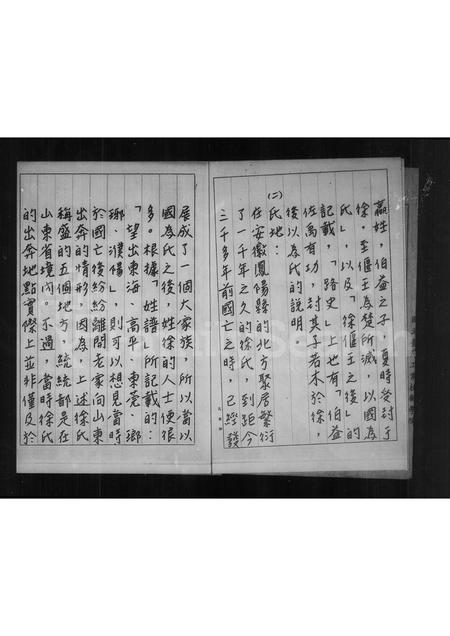 嬴姓，伯益之子，夏時受封于
徐，至偃王為楚所滅，以國為
氏」，以及「徐偃王之後」的
記載，「路史」上也有「伯益
佐禹有功，封其子若木於徐，
後以為氏的說明
㈡氏地：
在安徽鳳陽縣的北方聚居繁衍
了一千年之久的徐氏，到距今
三千多年前國亡之時，已經發
展成了一個大家族，所以當以
國為氏之後，姓徐的人士便很
多。根據「姓譜」所記載的：
「望出東海、高平、東莞、瑯
琊、濮陽」，則可以想見當時
於國亡後紛紛離開老家向山東
出奔的情形，因為，上述徐氏
稱盛的五個地方，統統都是在
山東省境內。不過，當時徐氏
的出奔地點實際上並非僅及於